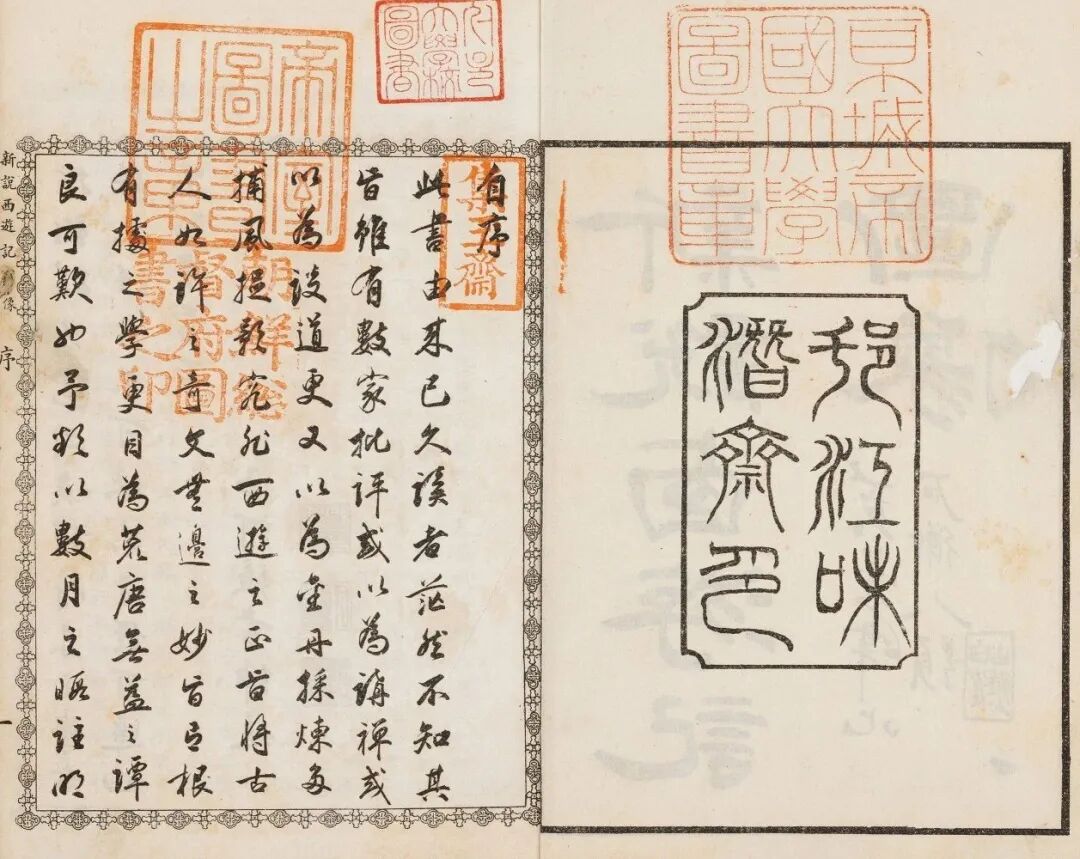 京城帝
國大學
圖書章
邗江味
潛齋印
大學校
圖書
帝國
圖書
之章
集玉齋
朝鮮總
督府圖
書之印
自序
此書由來已久讀者茫然不知其
旨雖有數家批評或以為講禪或
以為談道更又以為金丹採煉多
捕風捉影究非西遊之正旨將古
人如許之奇文無邊之妙旨有根
有據之學更目為荒唐無益之譚
良可歎也予以數月之暇註明
新說西遊記圖像 序 一